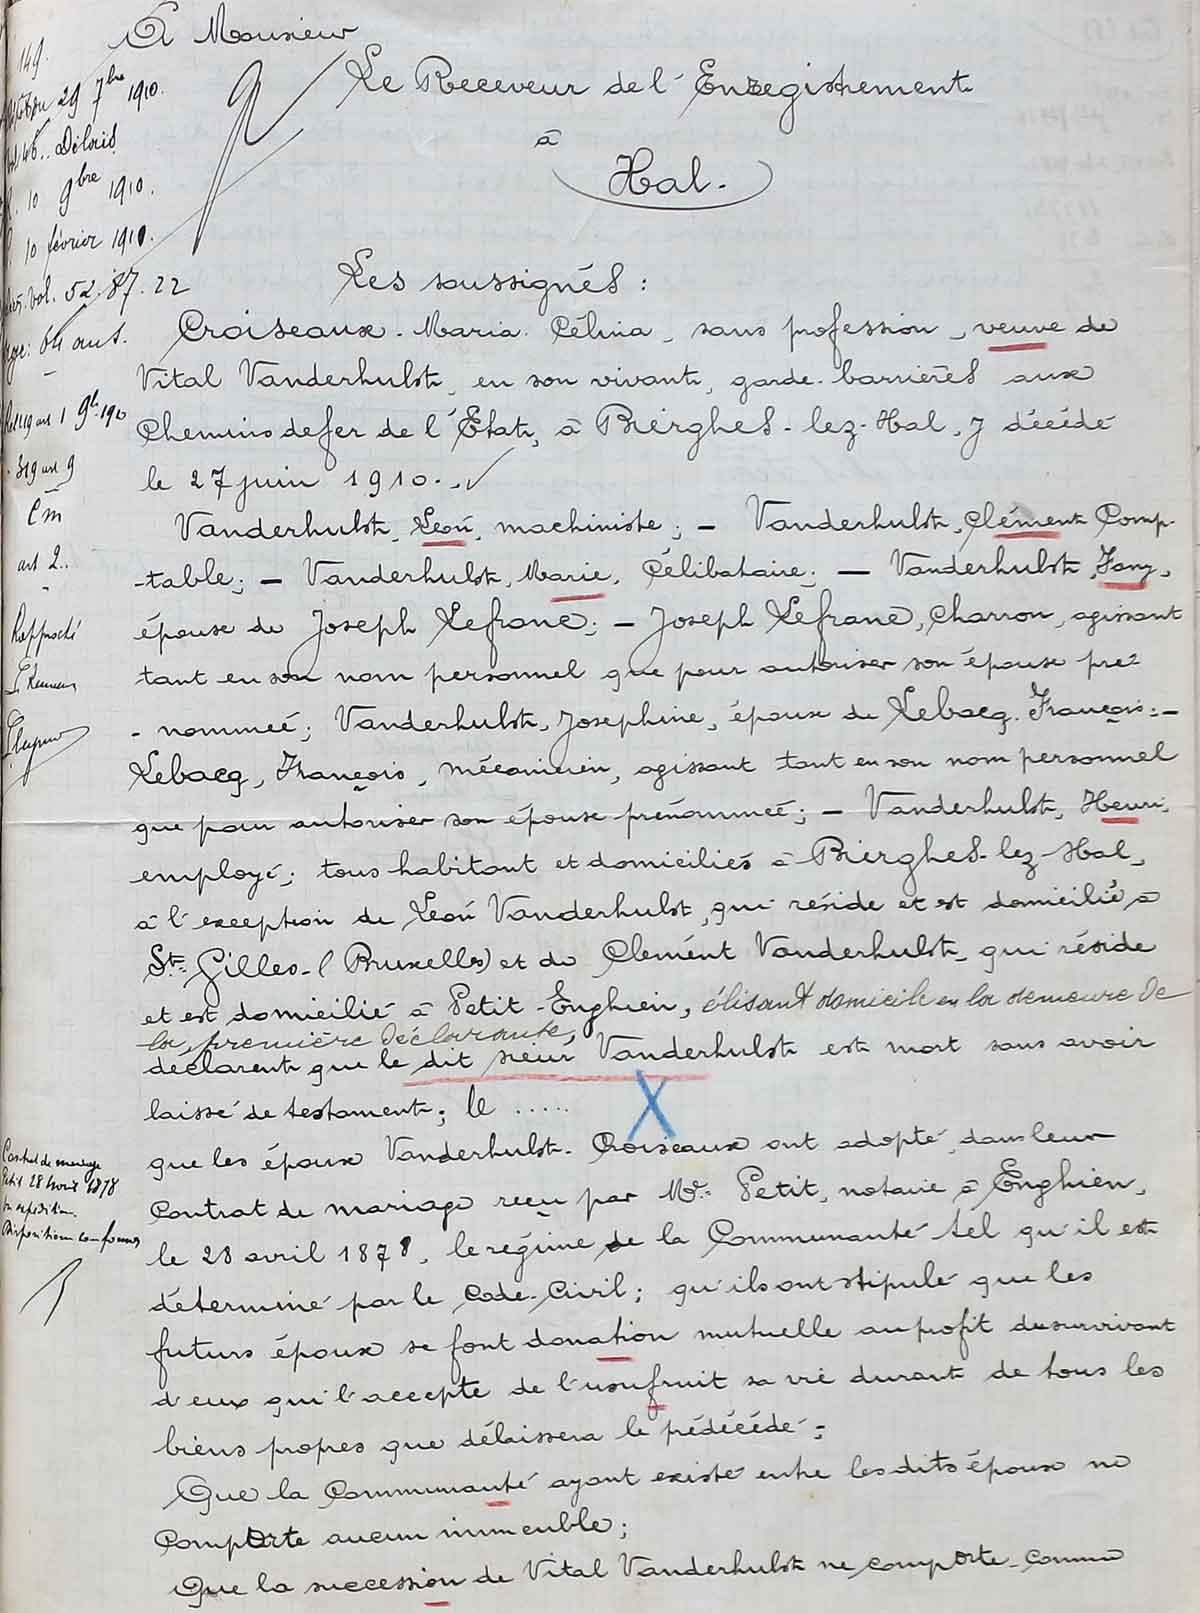 À Monsieur
Le Receveur de l'Enregistrement
à
Hal.
149.
29 7bre 1910.
Délais
10 9bre 1910.
10 février 1911.
vol. 52. 87. 22
64 ans.
art 1
319 art 9
Cm
art 2..
Rapproché
Les soussignés :
Croiseaux. Maria. Célina, sans profession, veuve de
Vital Vanderhulst, en son vivant, garde-barrières aux
Chemins de fer de l'État, à Bierghes-lez-Hal, y décédé
le 27 juin 1910.
Vanderhulst, Léon, machiniste; — Vanderhulst, Clément Comp-
-table; — Vanderhulst, Marie, Célibataire; — Vanderhulst, Fany,
épouse de Joseph Lefranc; — Joseph Lefranc, charron, agissant
tant en son nom personnel que pour autoriser son épouse pré-
- nommée; Vanderhulst, Joséphine, épouse de Lebacq. François; —
Lebacq, François, mécanicien, agissant tant en son nom personnel
que pour autoriser son épouse prénommée; — Vanderhulst, Henri,
employé; tous habitant et domiciliés à Bierghes-lez-Hal,
à l'exception de Léon Vanderhulst, qui réside et est domicilié à
St Gilles-(Bruxelles) et de Clément Vanderhulst, qui réside
et est domicilié à Petit-Enghien, élisant domicile en la demeure de
la première déclarante,
déclarent que le dit sieur Vanderhulst est mort sans avoir
laissé de testament; le .....
X
que les époux Vanderhulst-Croiseaux ont adopté, dans leur
Contrat de mariage
Petit 28 avril 1878
en expédition.
Dispositions conformes
contrat de mariage reçu par Me Petit, notaire à Enghien,
le 28 avril 1878, le régime de la Communauté tel qu'il est
déterminé par le Code-Civil; qu'ils ont stipulé que les
futurs époux se font donation mutuelle au profit du survivant
d'eux qui l'accepte de l'usufruit sa vie durant de tous les
biens propres que délaissera le prédécédé;
Que la Communauté ayant existé entre les dits époux ne
comporte aucun immeuble;
Que la succession de Vital Vanderhulst ne comporte comme